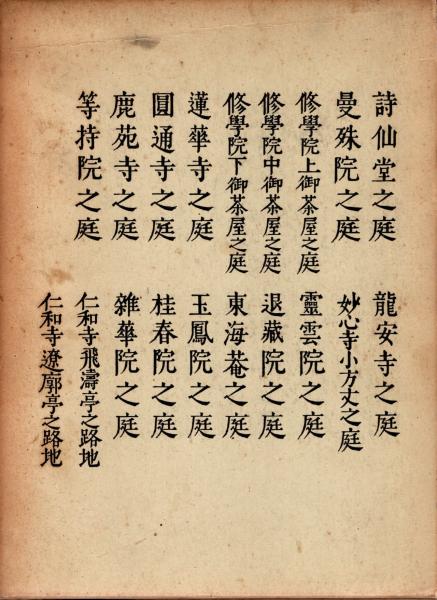 詩仙堂之庭
曼殊院之庭
修學院上御茶屋之庭
修學院中御茶屋之庭
修學院下御茶屋之庭
蓮華寺之庭
圓通寺之庭
鹿苑寺之庭
等持院之庭
龍安寺之庭
妙心寺小方丈之庭
靈雲院之庭
退藏院之庭
東海菴之庭
玉鳳院之庭
桂春院之庭
雜華院之庭
仁和寺飛濤亭之路地
仁和寺遼廓亭之路地